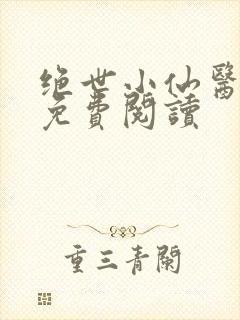 绝世小仙醫
免費閱讀
重三青闌